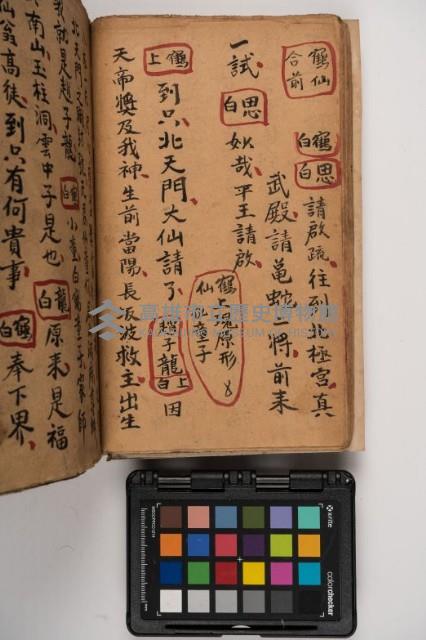 鶴仙
合前
鶴白
思白
請啟疏往到北極宮真
武殿請龜蛇將前来
一試
思白
妙哉平王請啟
鶴現原形
仙童子
鶴上
到只北天門大仙請了
趙子龍上白
因
天帝獎及我神生前當陽長坂波救主出生
北天門
我就是趙子龍
鶴白
小童白鶴童子家師
南山玉柱洞雲中子是也
龍白
原来是福
仙翁高徒到只有何貴事
鶴白
奉下界
高雄市立歷史博物館
KAOHSIUNG MUSEUM OF HISTORY
x-rite
colorchecker